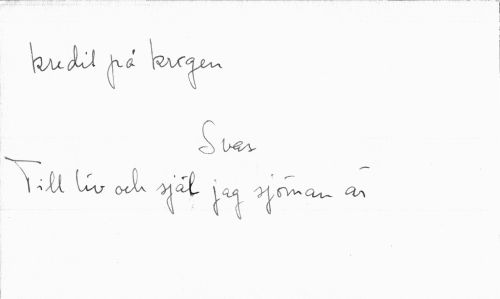 kredit på krogen
Svar
Till liv och själ jag sjöman är